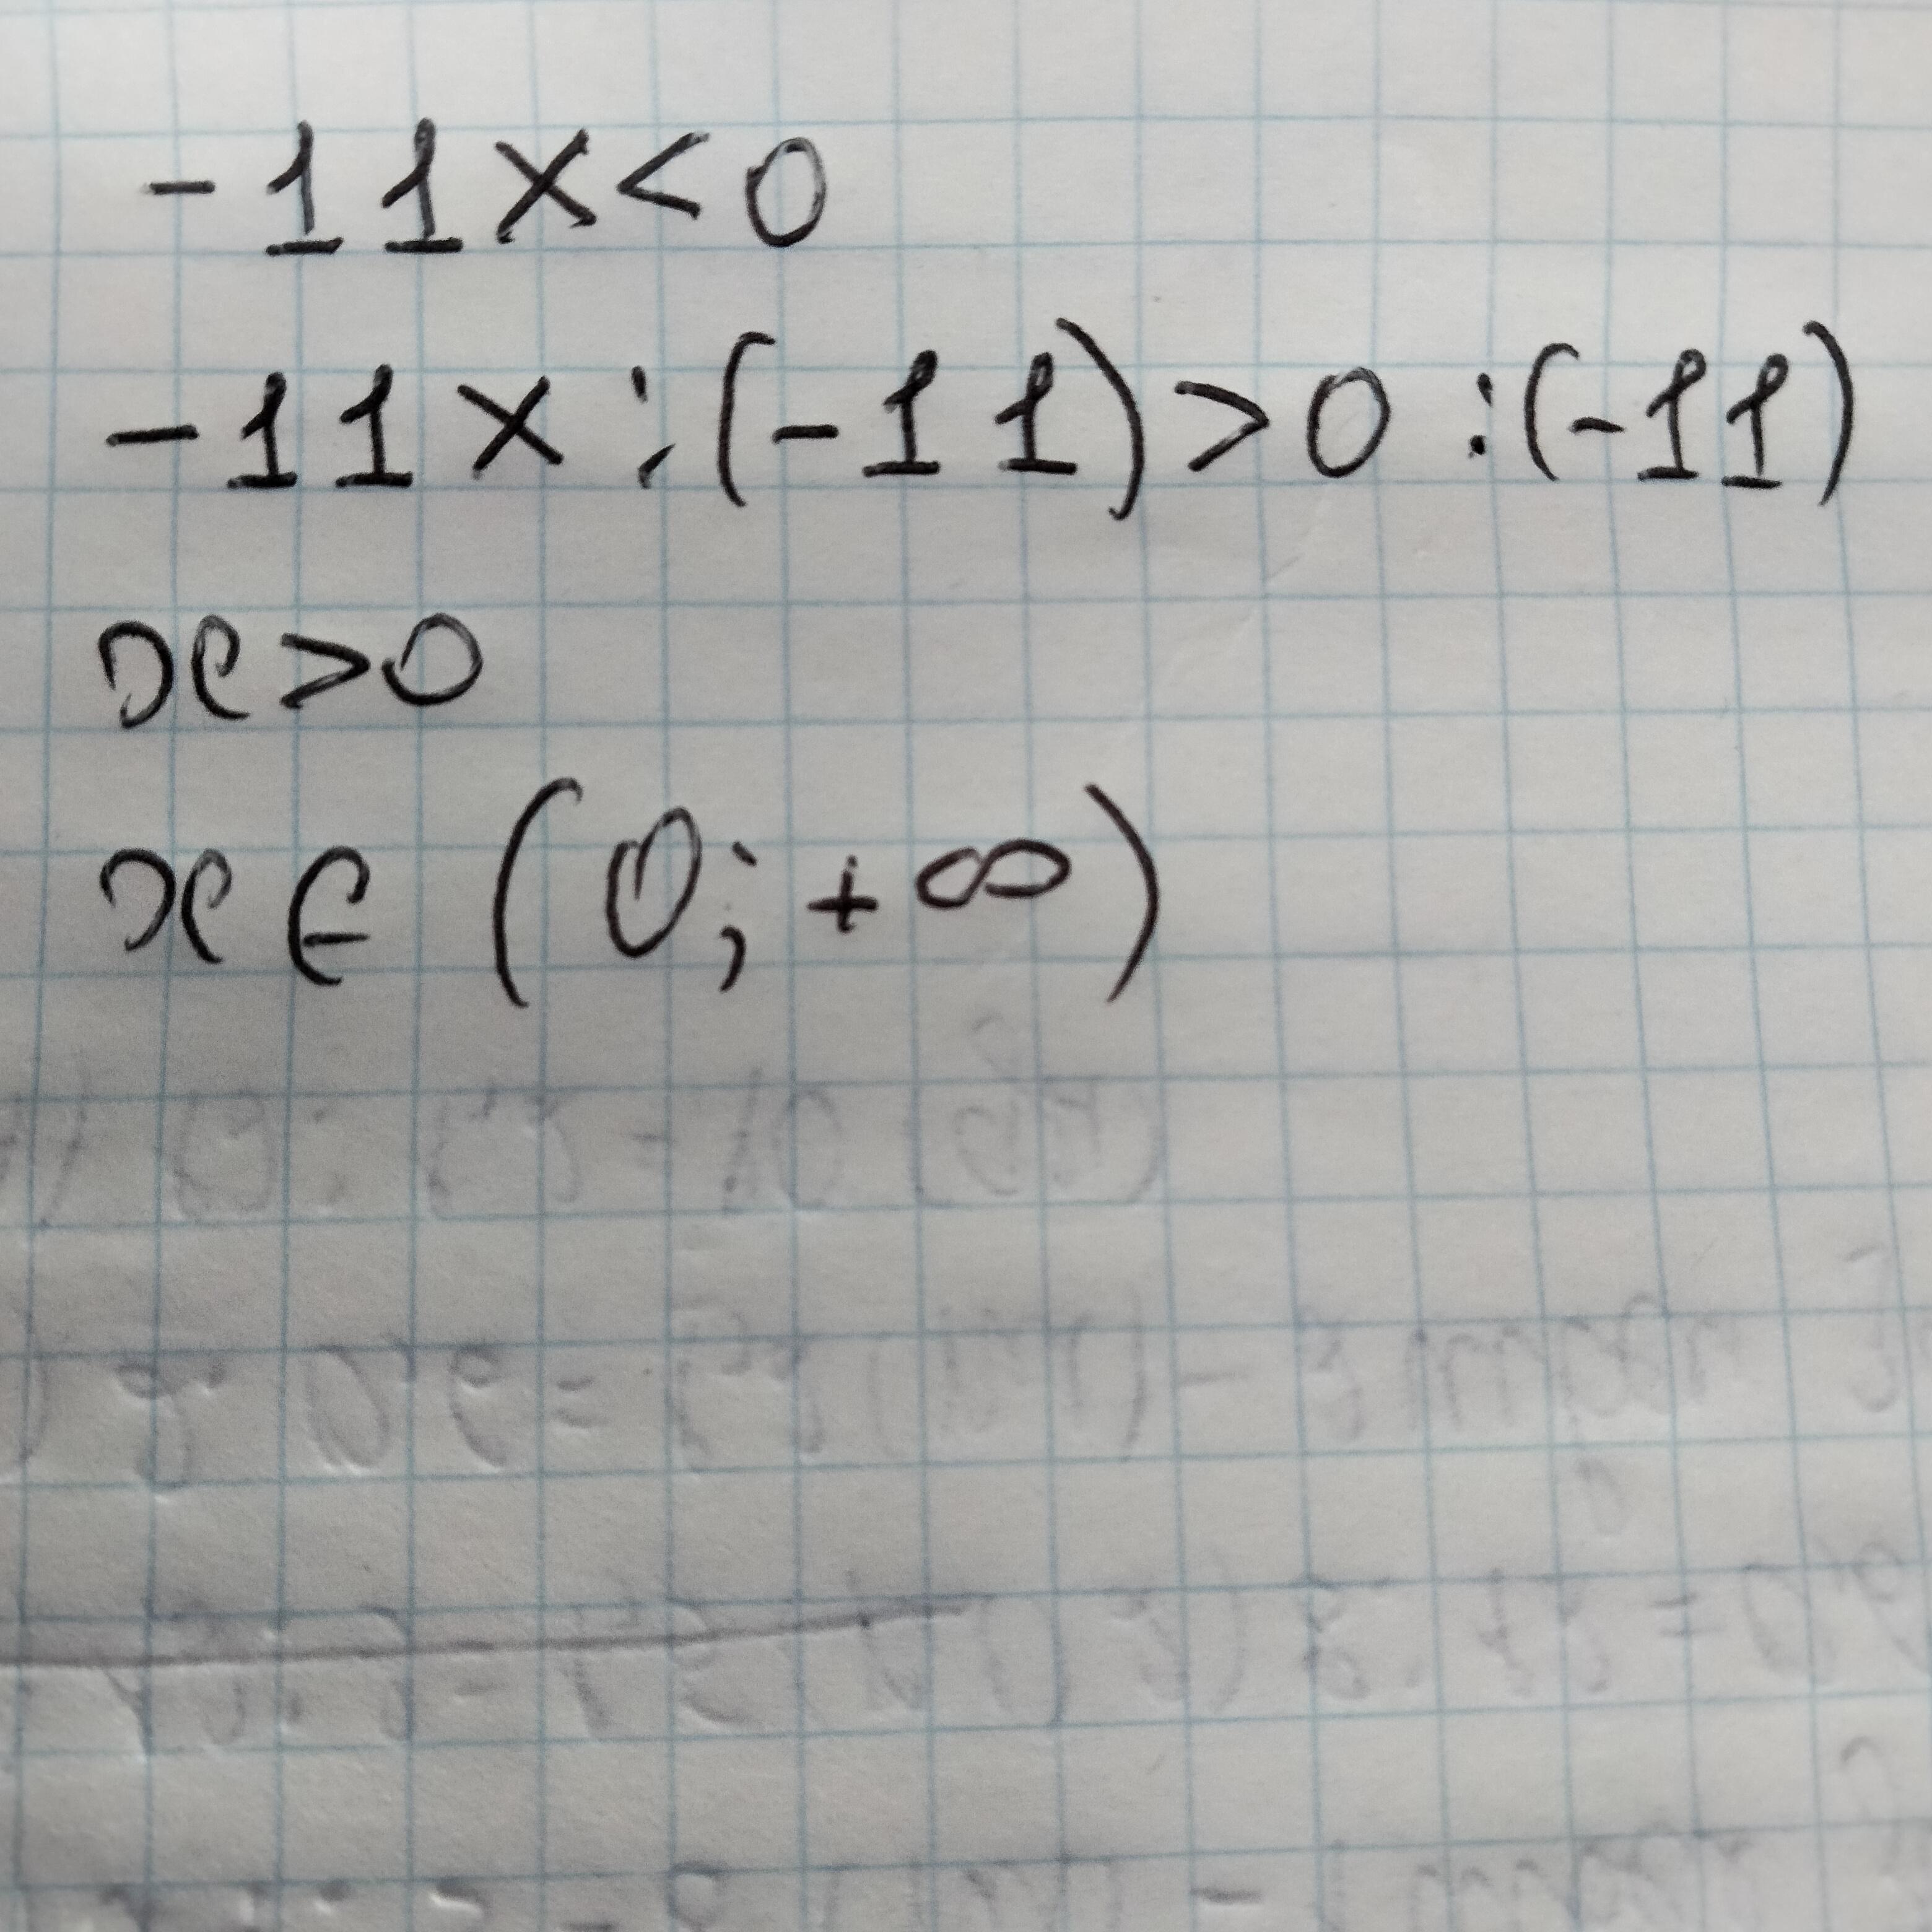 -11x<0
-11x:(-11)>0:(-11)
x>0
x∈(0;+∞)